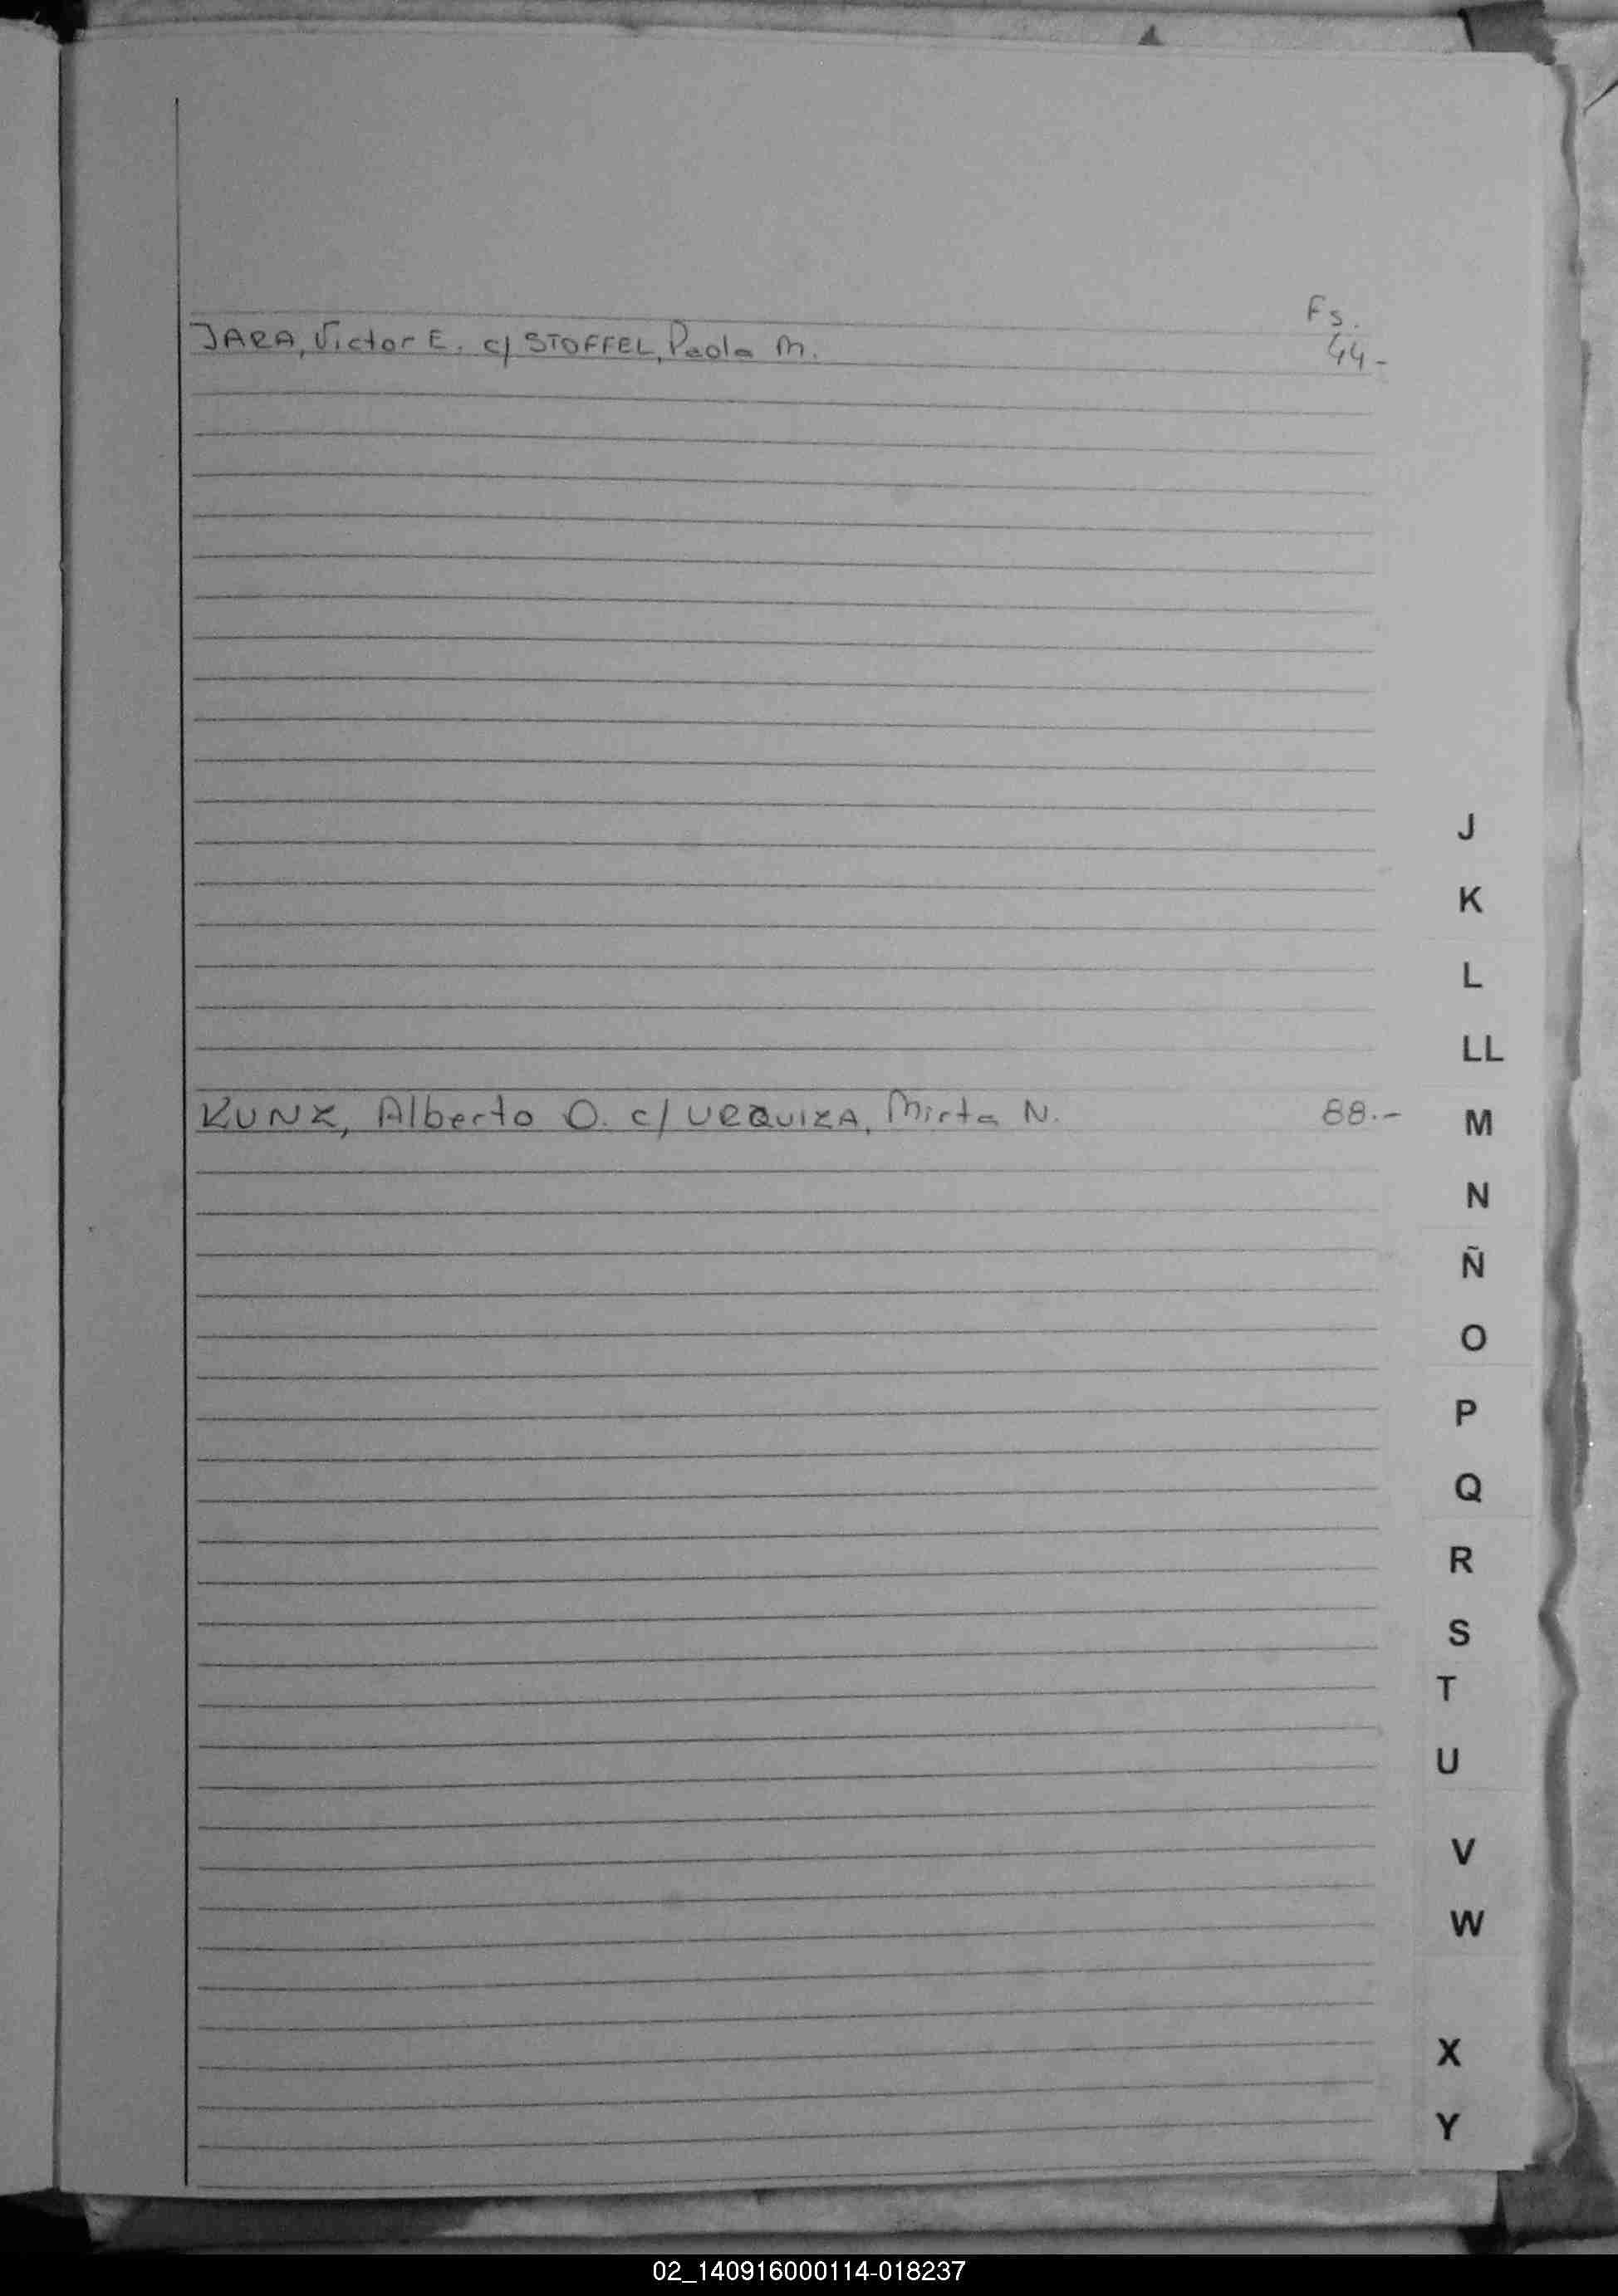 Fs.
JARA, Victor E. c/ STOFFEL, Paola M. 44-
J
K
L
LL
KUNZ, Alberto O. c/ URQUIZA, Mirta N. 88.-
M
N
Ñ
O
P
Q
R
S
T
U
V
W
X
Y
02_140916000114-018237